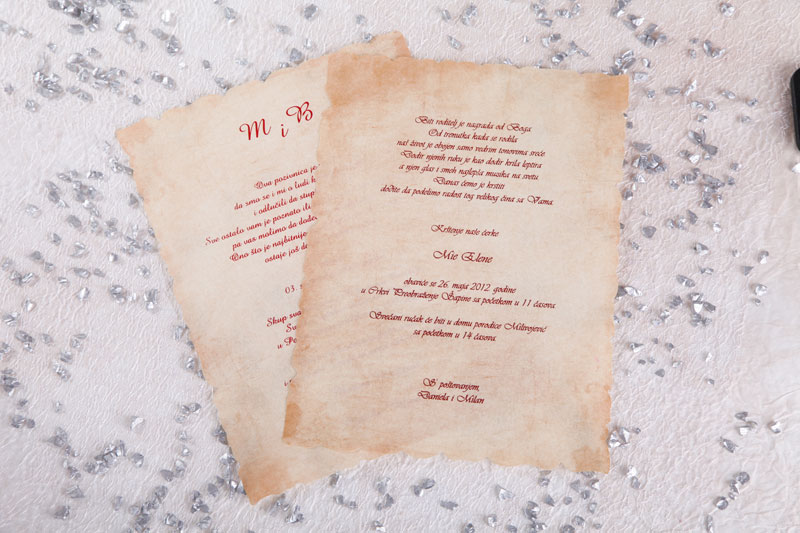 M i B
Ova pozivnica je
da smo se i mi o ludi
i odlučili da stup
Sve ostalo vam je poznato ili
pa vas molimo da dođe
Ono što je najbitnije
ostaje još da
03.
Skup sva
Su
u Pe
Biti roditelj je nagrada od Boga
Od trenutka kada se rodila
naš život je obojen samo vedrim tonovima sreće
Dodir njenih ruku je kao dodir krila leptira
a njen glas i smeh najlepša muzika na svetu.
Danas ćemo je krstiti
dođite da podelimo radost tog velikog čina sa Vama
Krštenje naše ćerke
Mie Elene
obaviće se 26. maja 2012. godine
u Crkvi Preobraženje Šapine sa početkom u 11 časova
Svečani ručak će biti u domu porodice Milivojević
sa početkom u 14 časova
S poštovanjem,
Daniela i Milan